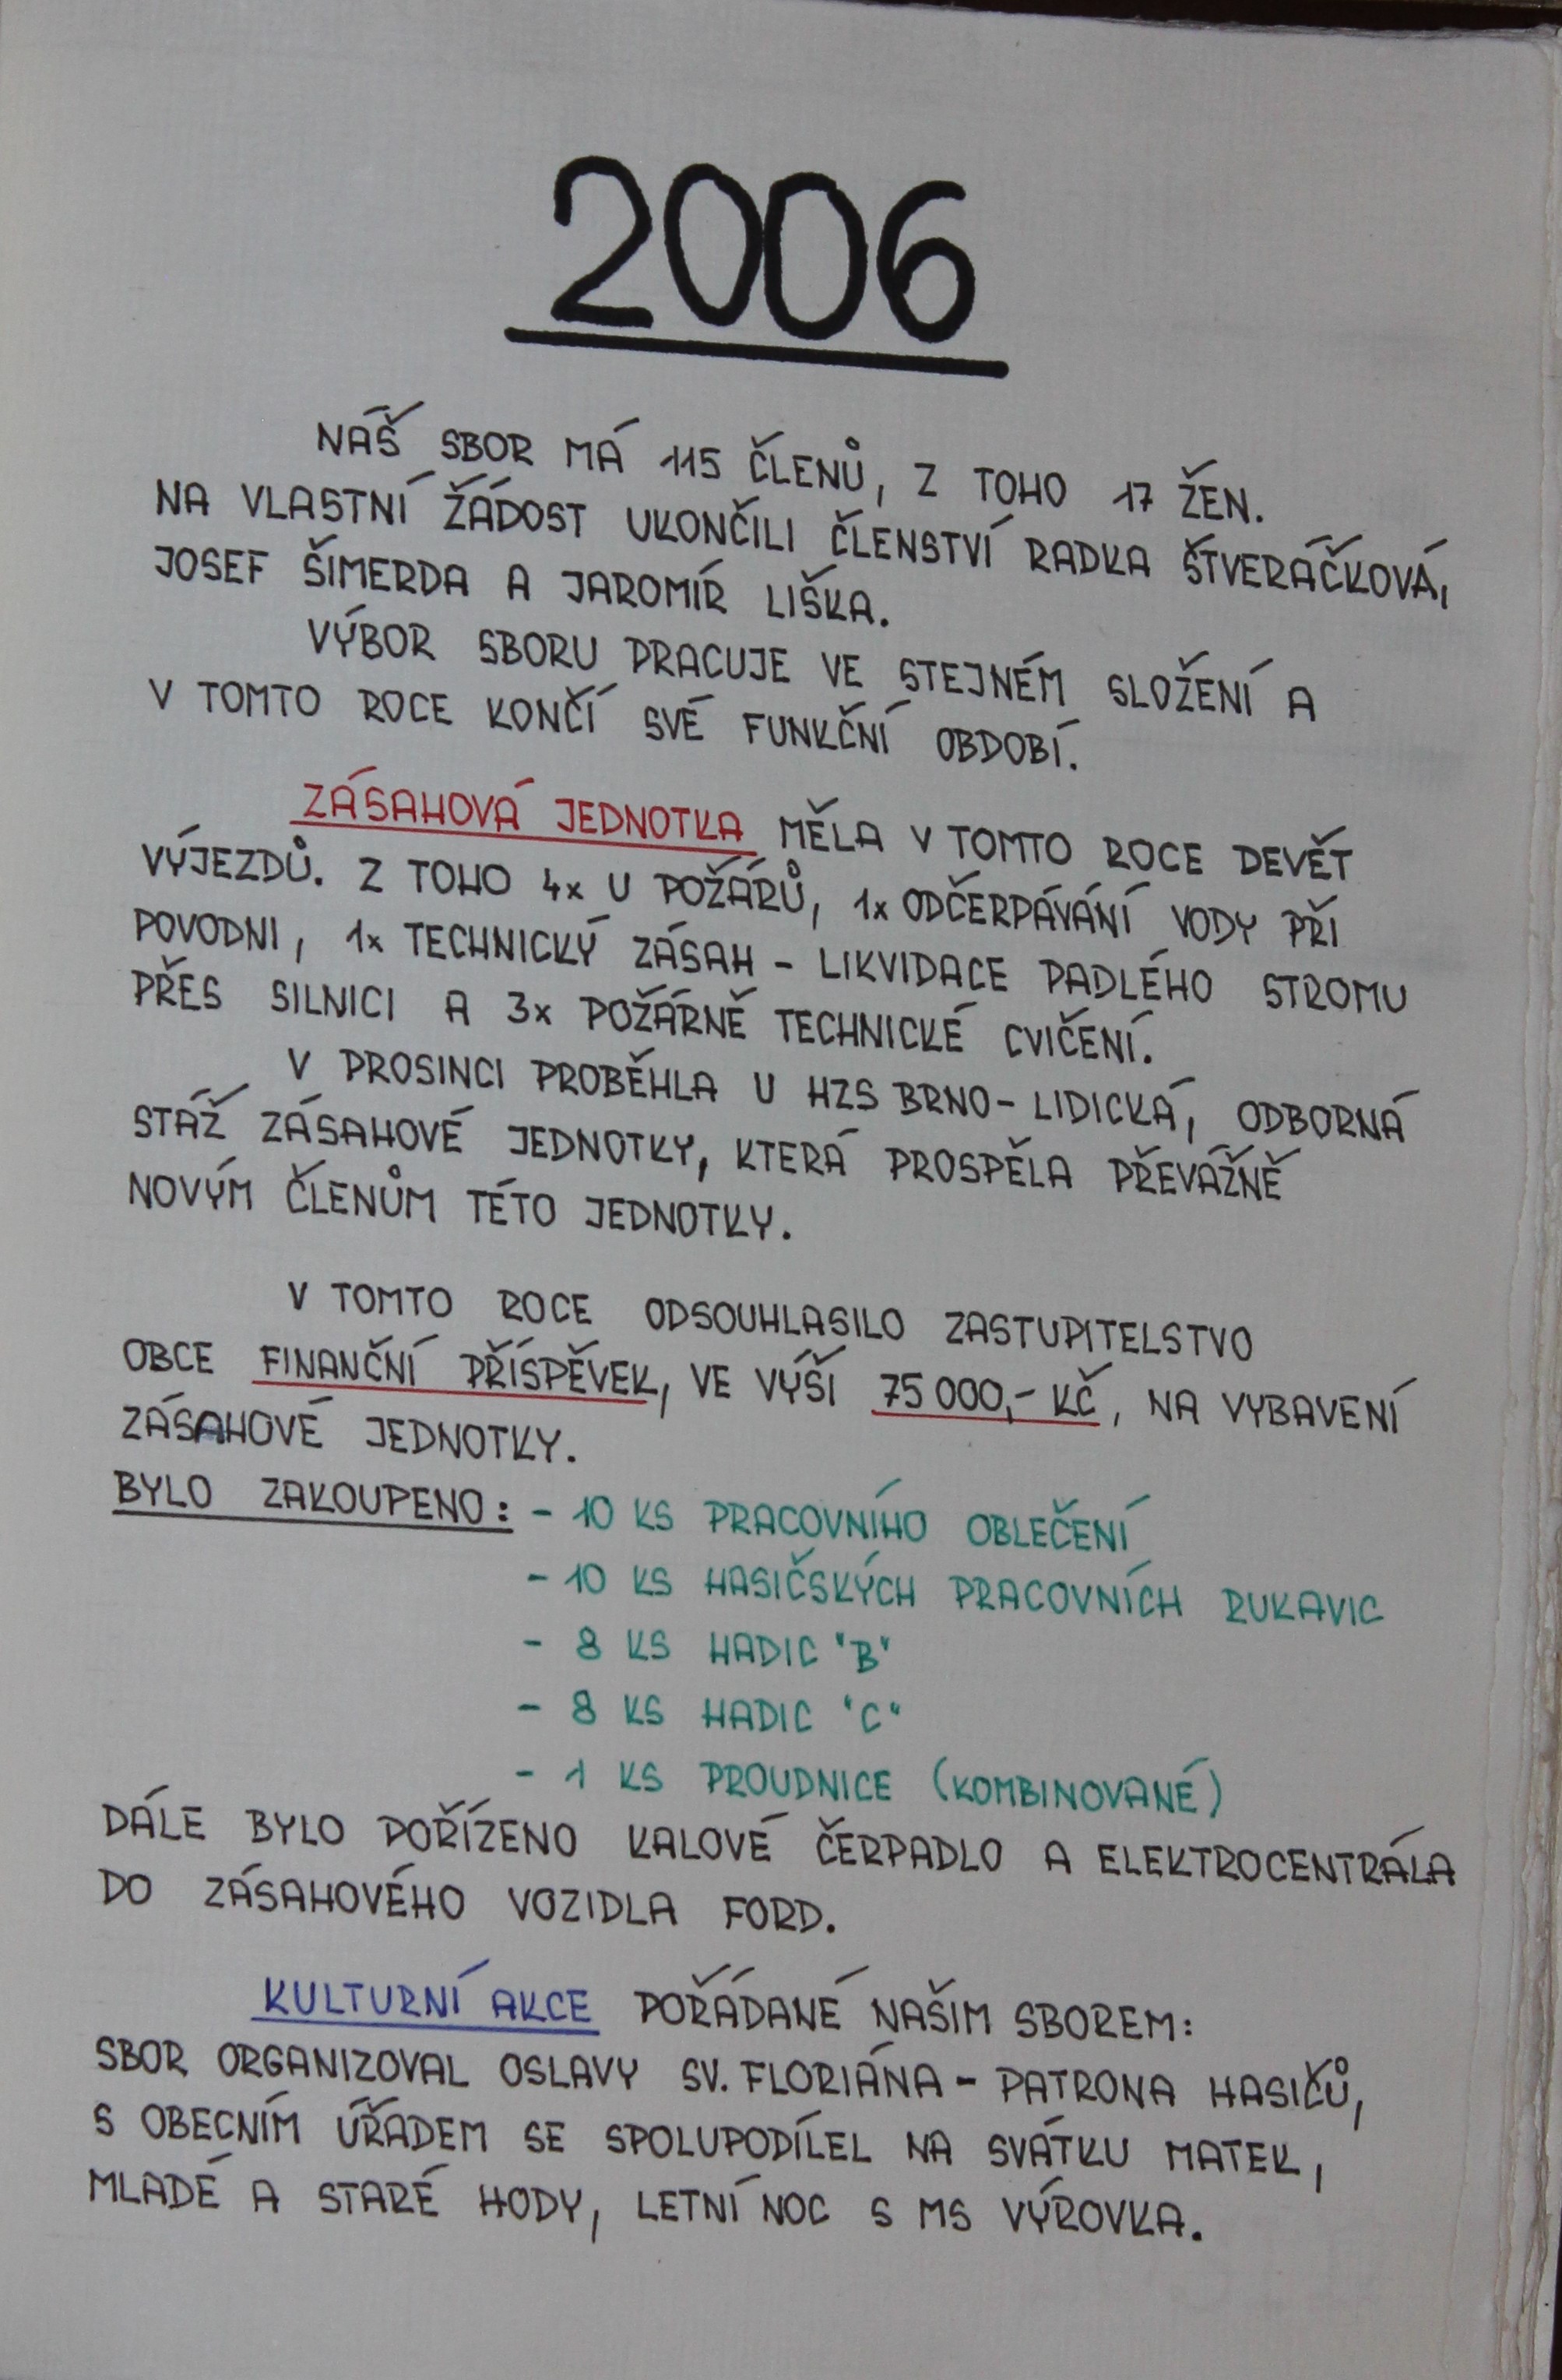 2006
NÁŠ SBOR MÁ 115 ČLENŮ, Z TOHO 17 ŽEN.
NA VLASTNÍ ŽÁDOST UKONČILI ČLENSTVÍ RADKA ŠTVERÁČKOVÁ,
JOSEF ŠIMERDA A JAROMÍR LIŠKA.
VÝBOR SBORU PRACUJE VE STEJNÉM SLOŽENÍ A
V TOMTO ROCE KONČÍ SVÉ FUNKČNÍ OBDOBÍ.
ZÁSAHOVÁ JEDNOTKA MĚLA V TOMTO ROCE DEVĚT
VÝJEZDŮ. Z TOHO 4x U POŽÁRŮ, 1x ODČERPÁVÁNÍ VODY PŘI
POVODNI, 1x TECHNICKÝ ZÁSAH - LIKVIDACE PADLÉHO STROMU
PŘES SILNICI A 3x POŽÁRNĚ TECHNICKÉ CVIČENÍ.
V PROSINCI PROBĚHLA U HZS BRNO - LIDICKÁ, ODBORNÁ
STÁŽ ZÁSAHOVÉ JEDNOTKY, KTERÁ PROSPĚLA PŘEVÁŽNĚ
NOVÝM ČLENŮM TÉTO JEDNOTKY.
V TOMTO ROCE ODSOUHLASILO ZASTUPITELSTVO
OBCE FINANČNÍ PŘÍSPĚVEK, VE VÝŠI 75 000,- KČ, NA VYBAVENÍ
ZÁSAHOVÉ JEDNOTKY.
BYLO ZAKOUPENO: - 10 KS PRACOVNÍHO OBLEČENÍ
- 10 KS HASIČSKÝCH PRACOVNÍCH RUKAVIC
- 8 KS HADIC "B"
- 8 KS HADIC "C"
- 1 KS PROUDNICE (KOMBINOVANÉ)
DÁLE BYLO POŘÍZENO KALOVÉ ČERPADLO A ELEKTROCENTRÁLA
DO ZÁSAHOVÉHO VOZIDLA FORD.
KULTURNÍ AKCE POŘÁDANÉ NAŠIM SBOREM:
SBOR ORGANIZOVAL OSLAVY SV. FLORIÁNA - PATRONA HASIČŮ,
S OBECNÍM ÚŘADEM SE SPOLUPODÍLEL NA SVÁTKU MATEK,
MLADÉ A STARÉ HODY, LETNÍ NOC S MS VÝROVKA.